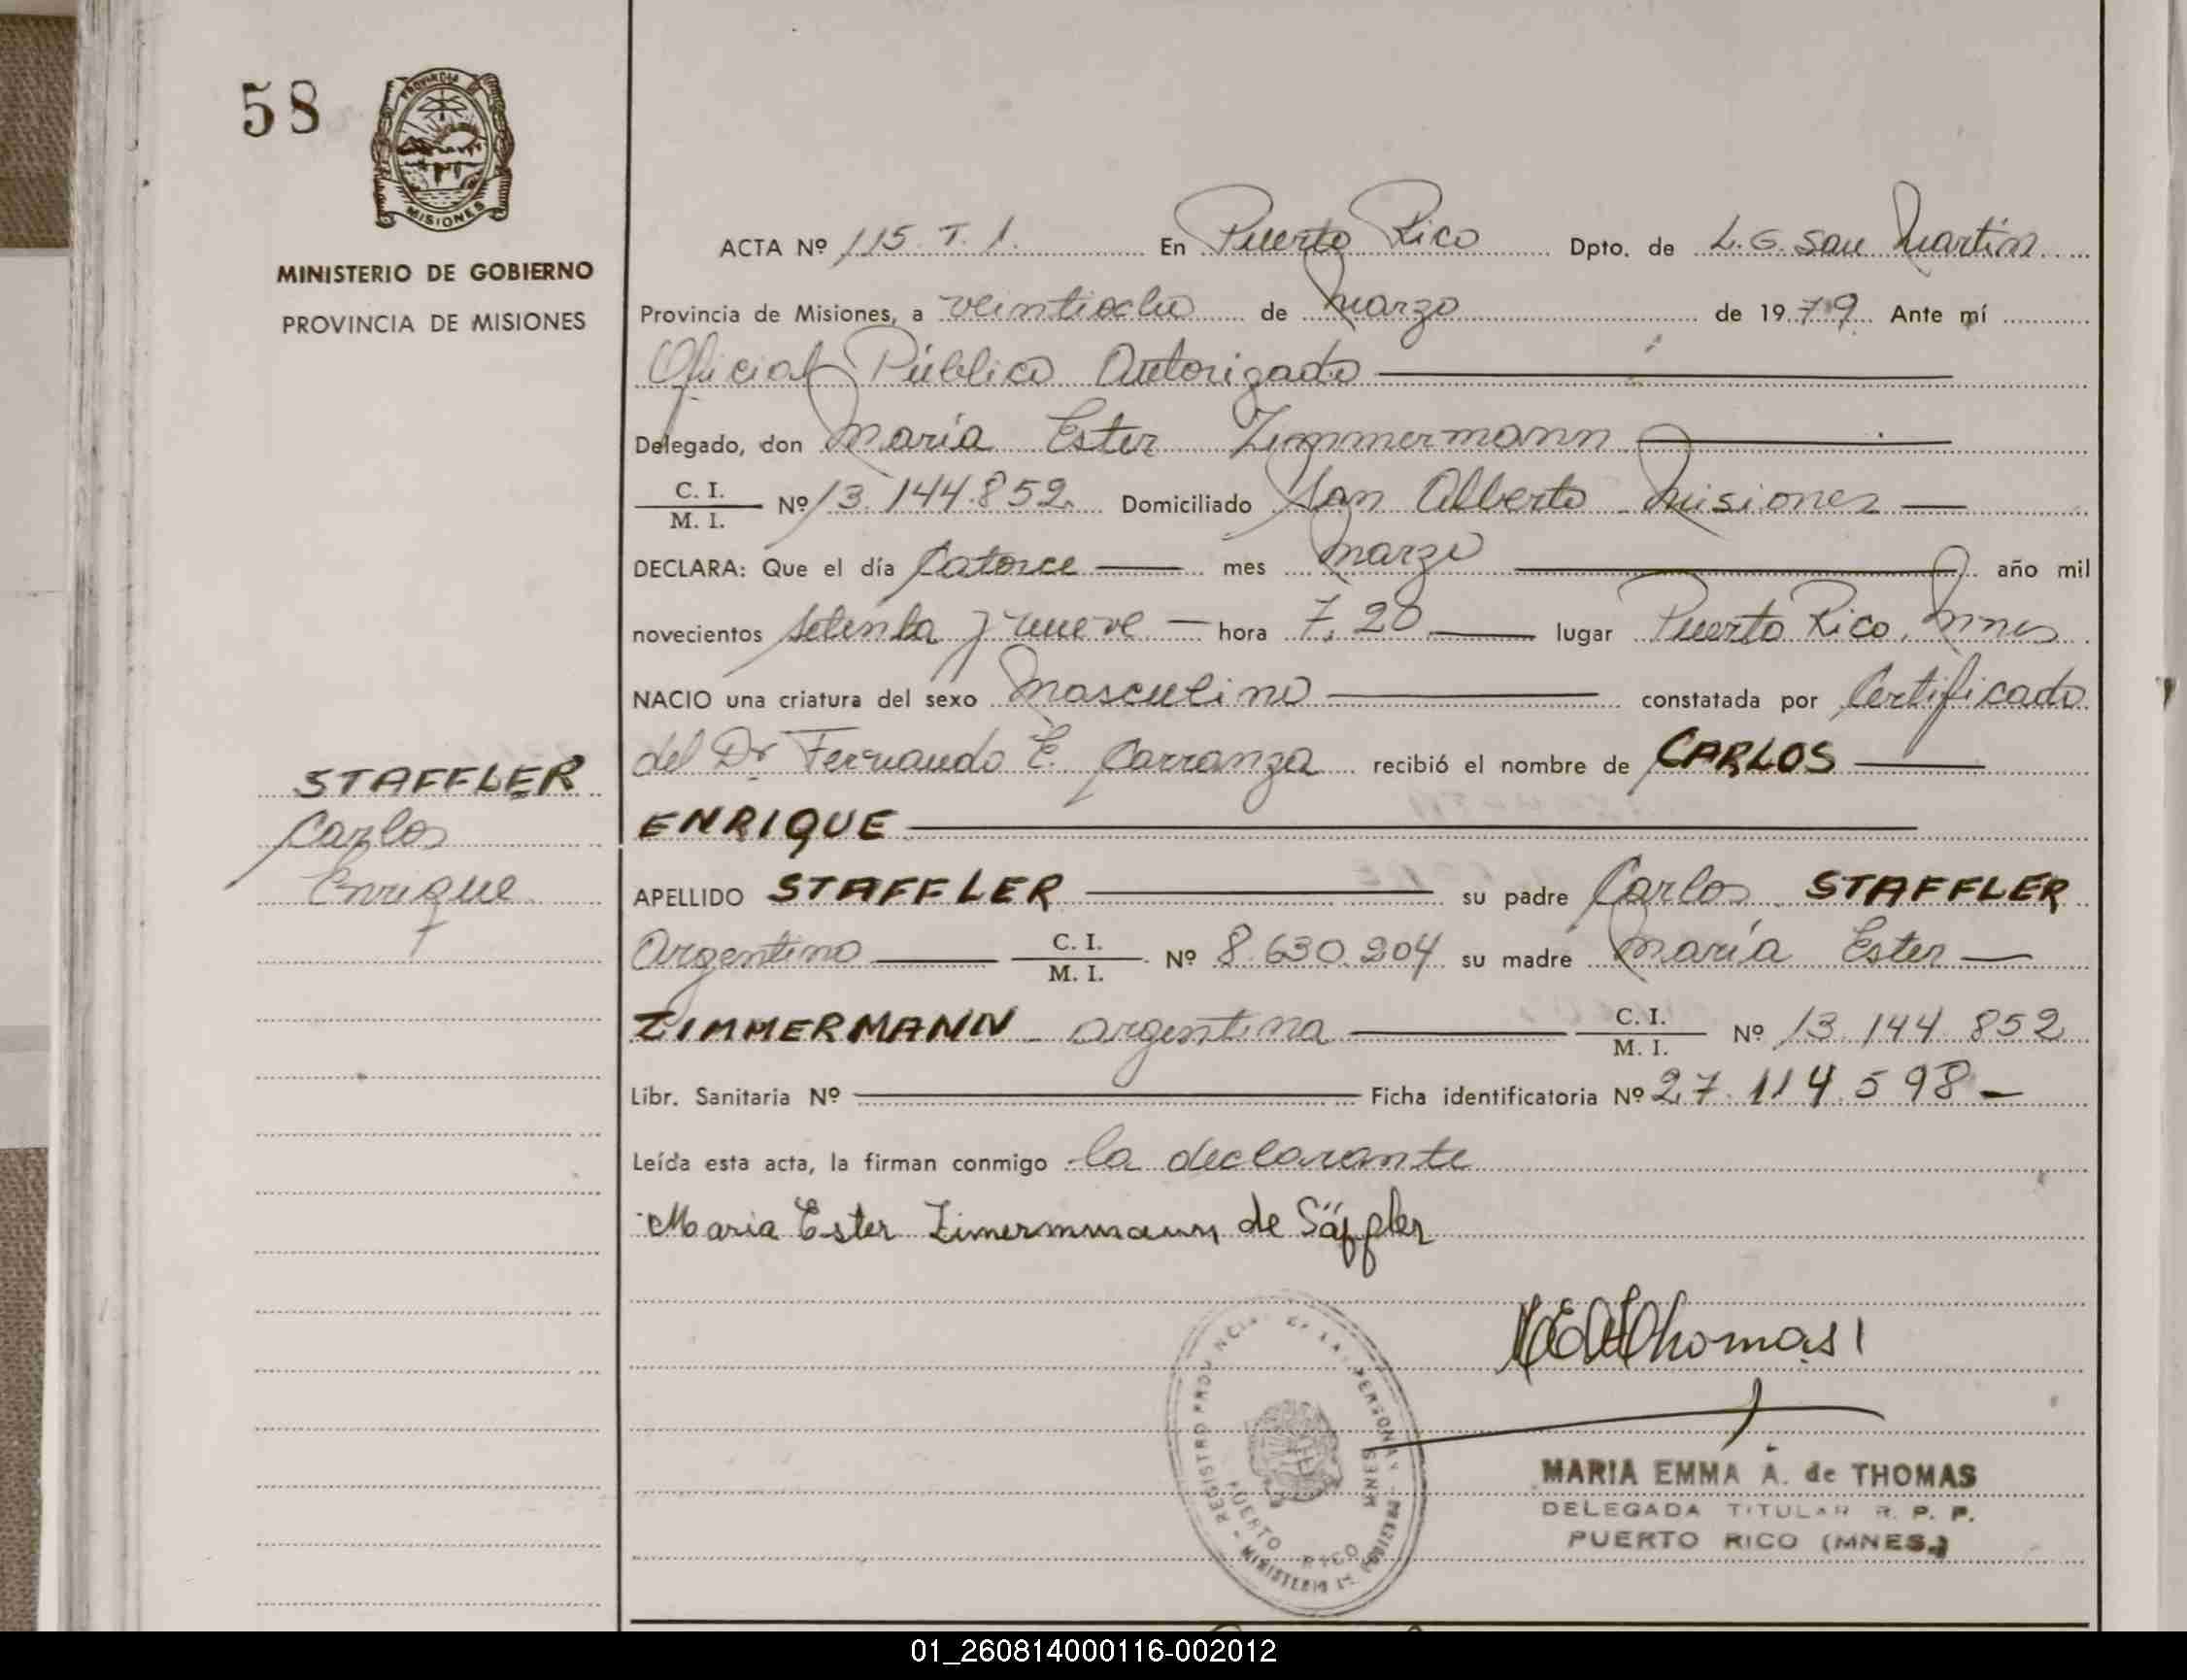 58
PROVINCIA
MISIONES
MINISTERIO DE GOBIERNO
PROVINCIA DE MISIONES
STAFFLER
Carlos
Enrique
ACTA Nº 115. T. 1. En Puerto Rico Dpto. de L. G. San Martín
Provincia de Misiones, a veintiocho de Marzo de 1979 Ante mí
Oficial Público Autorizado
Delegado, don María Ester Zimmermann
C. I. / M. I. Nº 13.144.852 Domiciliado San Alberto Misiones
DECLARA: Que el día Catorce mes Marzo año mil
novecientos setenta y nueve hora 7,20 lugar Puerto Rico, Mnes
NACIO una criatura del sexo Masculino constatada por Certificado
del Dr Fernando E. Carranza recibió el nombre de CARLOS
ENRIQUE
APELLIDO STAFFLER su padre Carlos STAFFLER
Argentino C. I. / M. I. Nº 8.630.204 su madre María Ester
ZIMMERMANN argentina C. I. / M. I. Nº 13.144.852
Libr. Sanitaria Nº Ficha identificatoria Nº 27.114.598
Leída esta acta, la firman conmigo la declarante
Maria Ester Zimermmann de Säffler
REGISTRO PROVINCIAL DE LAS PERSONAS
MNES
PUERTO RICO
MINISTERIO DE GOBIERNO
MARIA EMMA A. de THOMAS
DELEGADA TITULAR R. P. P.
PUERTO RICO (MNES.)
01_260814000116-002012